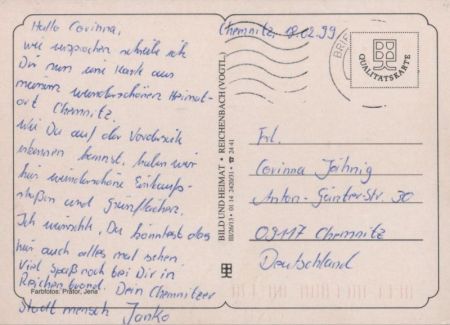 Hallo Corinna,
wie versprochen schreibe ich
Dir nun eine Karte aus
meinem wunderschönen Heimat-
ort Chemnitz.
Wie Du auf der Vorderseite
erkennen kannst, haben wir
hier wunderschöne Einkaufs-
straßen und Grünflächen.
Ich wünschte, Du könntest das
hier auch alles mal sehen
Viel Spaß noch bei Dir in
Dein Chemnitzer
Stadtmensch Janko
Farbfotos: Prator, Jena
BILD UND HEIMAT • REICHENBACH (VOGTL.)
III/26/13 • 01 14 2420/31 • ☎ 24 41
Chemnitz, 18.02.99
BRIEF
QUALITÄTSKARTE
Frl.
Corinna Jähnig
Anton-Günter-Str. 30
09117 Chemnitz
Deutschland